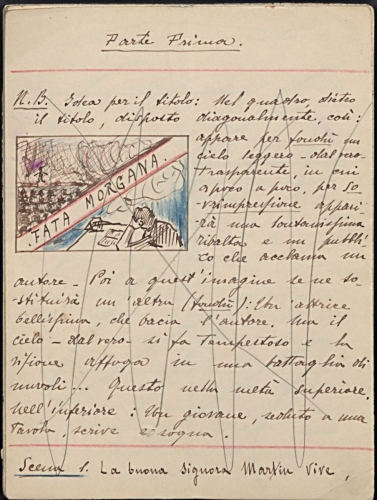 Parte Prima.
N.B. Idea per il titolo: Nel quadro, dietro
il titolo, disposto diagonalmente, così:
appare per fondù un
cielo leggero - dal vero -
trasparente, in cui
a poco a poco, per so-
vrimpressione appari-
rà una lontanissima
ribalta e un pubbli-
co che acclama un
FATA MORGANA.
autore - Poi a quest'imagine se ne so-
stituirà un'altra (fondù): Un'attrice
bellissima, che bacia l'autore. Ma il
cielo - dal vero - si fa tempestoso e la
visione affoga in una battaglia di
nuvoli... Questo nella metà superiore.
Nell'inferiore: Un giovane, seduto a una
tavola, scrive e sogna.
Scena 1. La buona Signora Martin vive,